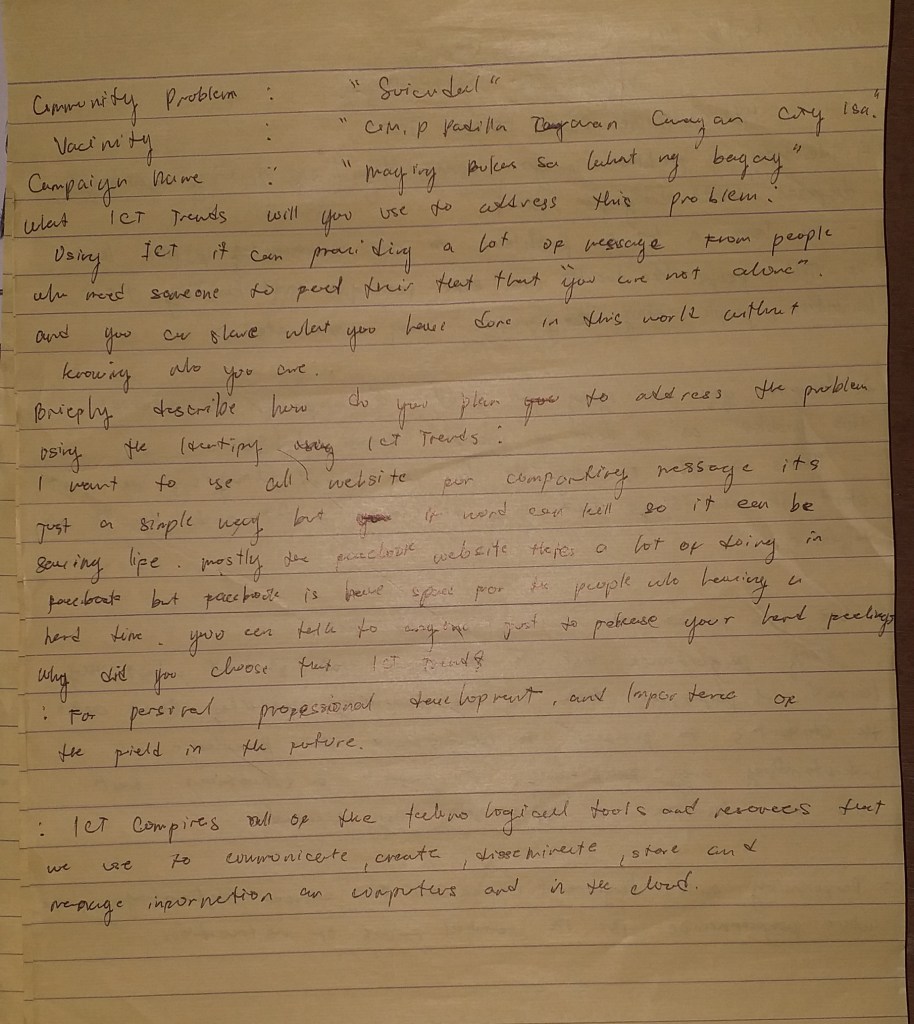 Community Problem : " Suicudal "
Vacinity : " Com. P Padilla Tagaran Cauayan City Isa."
Campaign Name : " maging bukas sa lahat ng bagay "
what ICT Trends will you use to address this problem :
Using ICT it can providing a lot of message from people
who need someone to their that that "you are not alone".
and you can share what you have done in this world without
knowing who you are.
Briefly describe how do you plan to address the problem
using the Identify ICT Trends :
I want to use all website for comforting message its
just a simple way but if word can kill so it can be
saving life. mostly the facebook website theirs a lot of doing in
facebook but facebook is have space for the people who having a
hard time. you can talk to anyone just to release your hard feelings
why did you choose that ICT Trends
: For personal professional development, and Importance of
the field in the future.
: ICT Compires all of the technological tools and resources that
we use to communicate, create, disseminate, store and
manage information on computers and in the cloud.